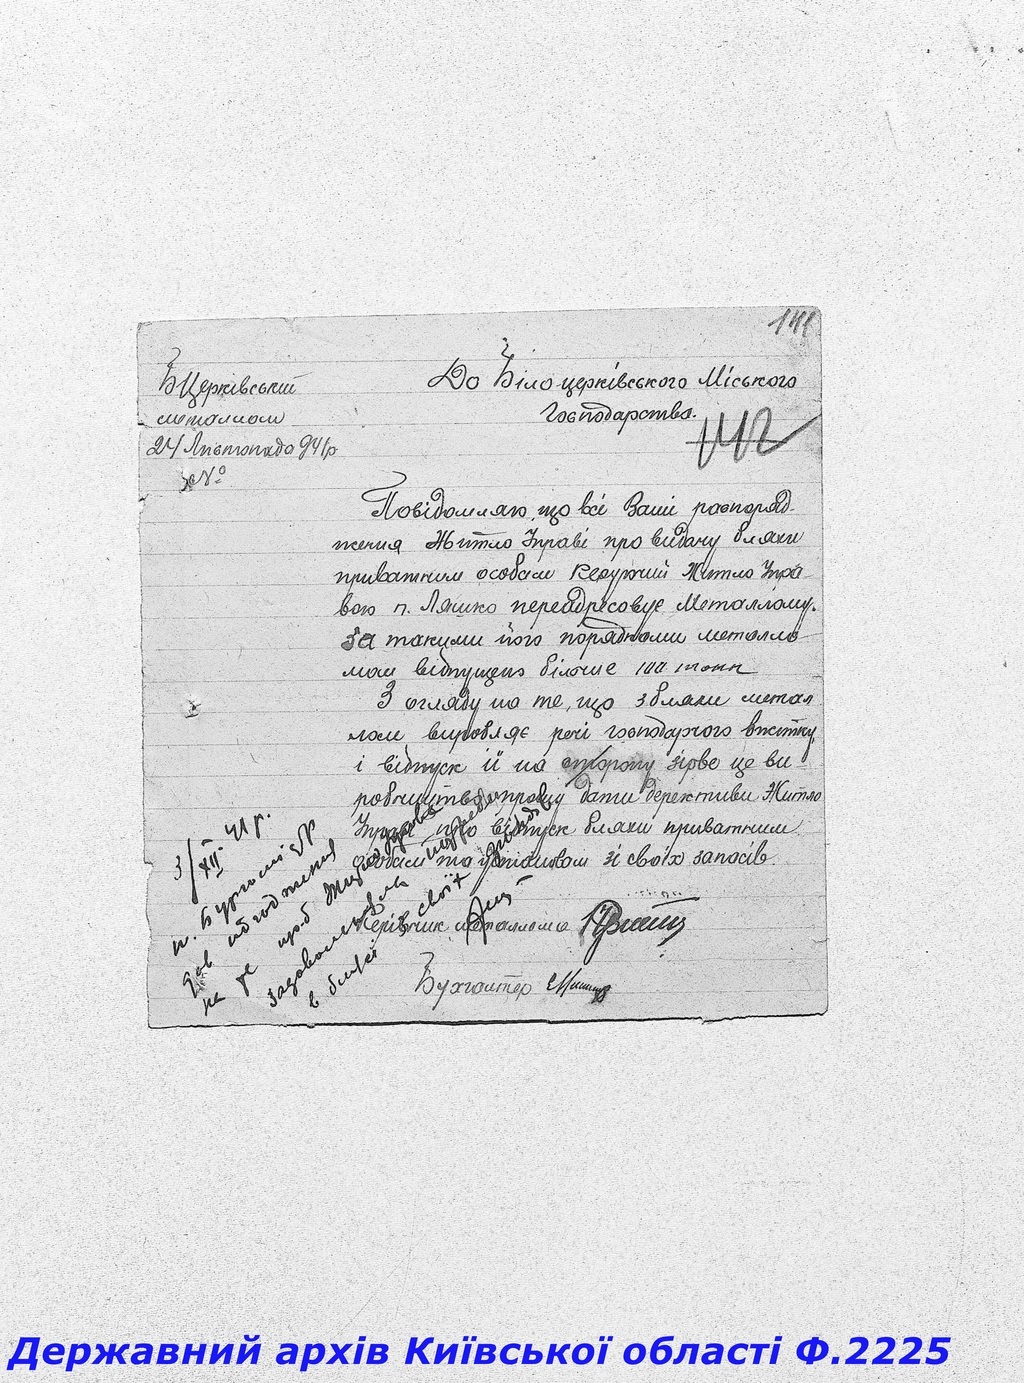 141
Б Церківський
металлом
24 Листопада 941р
№
До Білоцерківського Міського
Господарства.
142
Повідомляю, що всі Ваші розпоряд-
ження Житло Управі про видачу бляхи
приватним особам Керуючий Житло Упра-
вою п. Ляшко переадресовує Металлому.
За такими його порядками металло-
мом відпущено більше 100 тонн
З огляду на те, що з бляхи метал
лом виробляє речі господарчого вжитку,
і відпуск її на сторону зірве це ви-
робництво, прошу дати дерективи Житло
Управі про відпуск бляхи приватним
особам та установам зі своїх запасів.
Керівник металлома
Бухгалтер
3/XII 41 р.
п.
на
задовольняла
в своїх
Державний архів Київської області Ф.2225